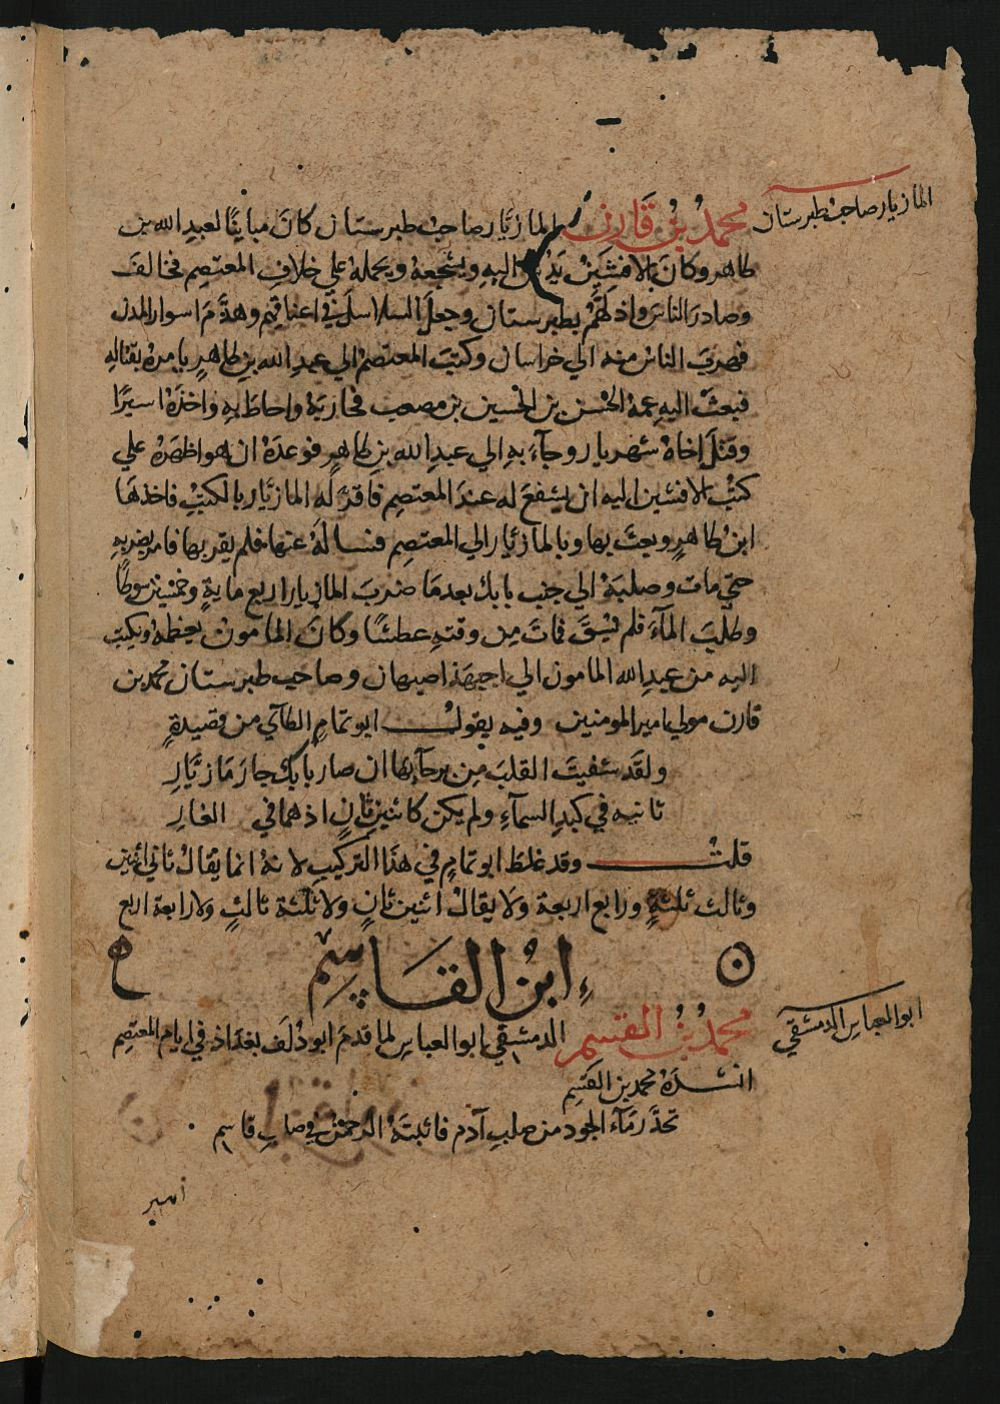 المازيار صاحب طبرستان
محمد بن قارن المازيار صاحب طبرستان كان مباينًا لعبد الله بن
طاهر وكان الافشين يدس اليه ويشجعه ويحمله علي خلاف المعتصم فخالف
وصادر الناس واذلهم بطبرستان وجعل السلاسل في اعناقهم وهدم اسوار المدن
فهرب الناس منه الي خراسان وكتب المعتصم الي عبد الله بن طاهر يامره بقتاله
فبعث اليه عمه الحسن بن الحسين بن مصعب فحاربه واحاط به واخذه اسيرًا
وقتل اخاه شهريار وجآء به الي عبد الله بن طاهر فوعده ان هو اظهره علي
كتب الافشين اليه ان يشفع له عند المعتصم فاقر له المازيار بالكتب فاخذها
ابن طاهر وبعث بها وبالمازيار الي المعتصم فساله عنها فلم يقر بها فامر بضربه
حتي مات وصلبه الي جنب بابك بعد ما ضرب المازيار اربع ماية وخمسين سوطًا
وطلب المآء فلم يسق فمات من وقته عطشًا وكان المامون يعظمه ويكتب
اليه من عبد الله المامون الي اصبهبذ اصبهان وصاحب طبرستان محمد بن
قارن مولي امير المومنين وفيه يقول ابو تمام الطآي من قصيدةٍ
ولقد شفيت القلب من برحآيها ان صار بابك جار مازيار
ثانيه في كبد السمآء ولم يكن كاثنين ثانٍ اذ هما في الغار
قلت وقد غلط ابو تمام في هذا التركيب لانه انما يقال ثاني اثنين
وثالث ثلثة ورابع اربعة ولا يقال اثنين ثانٍ ولا ثلثة ثالثٍ ولا رابعة اربع
ابن القاسم
ابو العباس الدمشقي
محمد بن القسم الدمشقي ابو العباس لما قدم ابو دلف بغداذ في ايام المعتصم
انشده محمد بن القسم
تحدر مآء الجود من صلب آدم فاثبته الرحمن في صلب قاسم